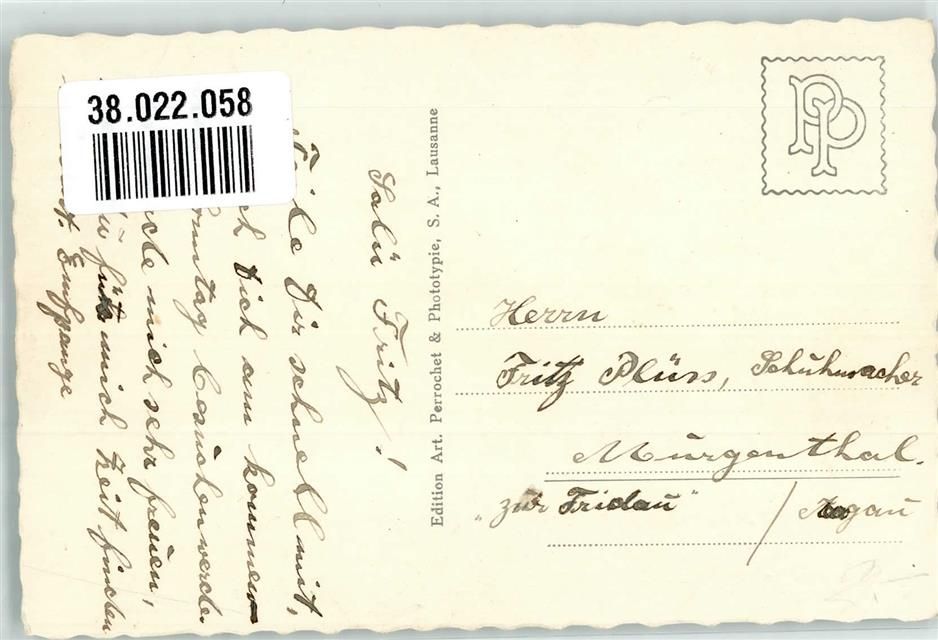 38.022.058
Salü Fritz!
Teile Dir schnell mit,
Dich am kommen
besuchen werde.
mich sehr freuen,
für mich Zeit finden
Empfange
Edition Art. Perrochet & Phototypie, S. A., Lausanne
PP
Herrn
Fritz Plüss, Schuhmacher
Murgenthal.
„zur Fridau" / Aargau